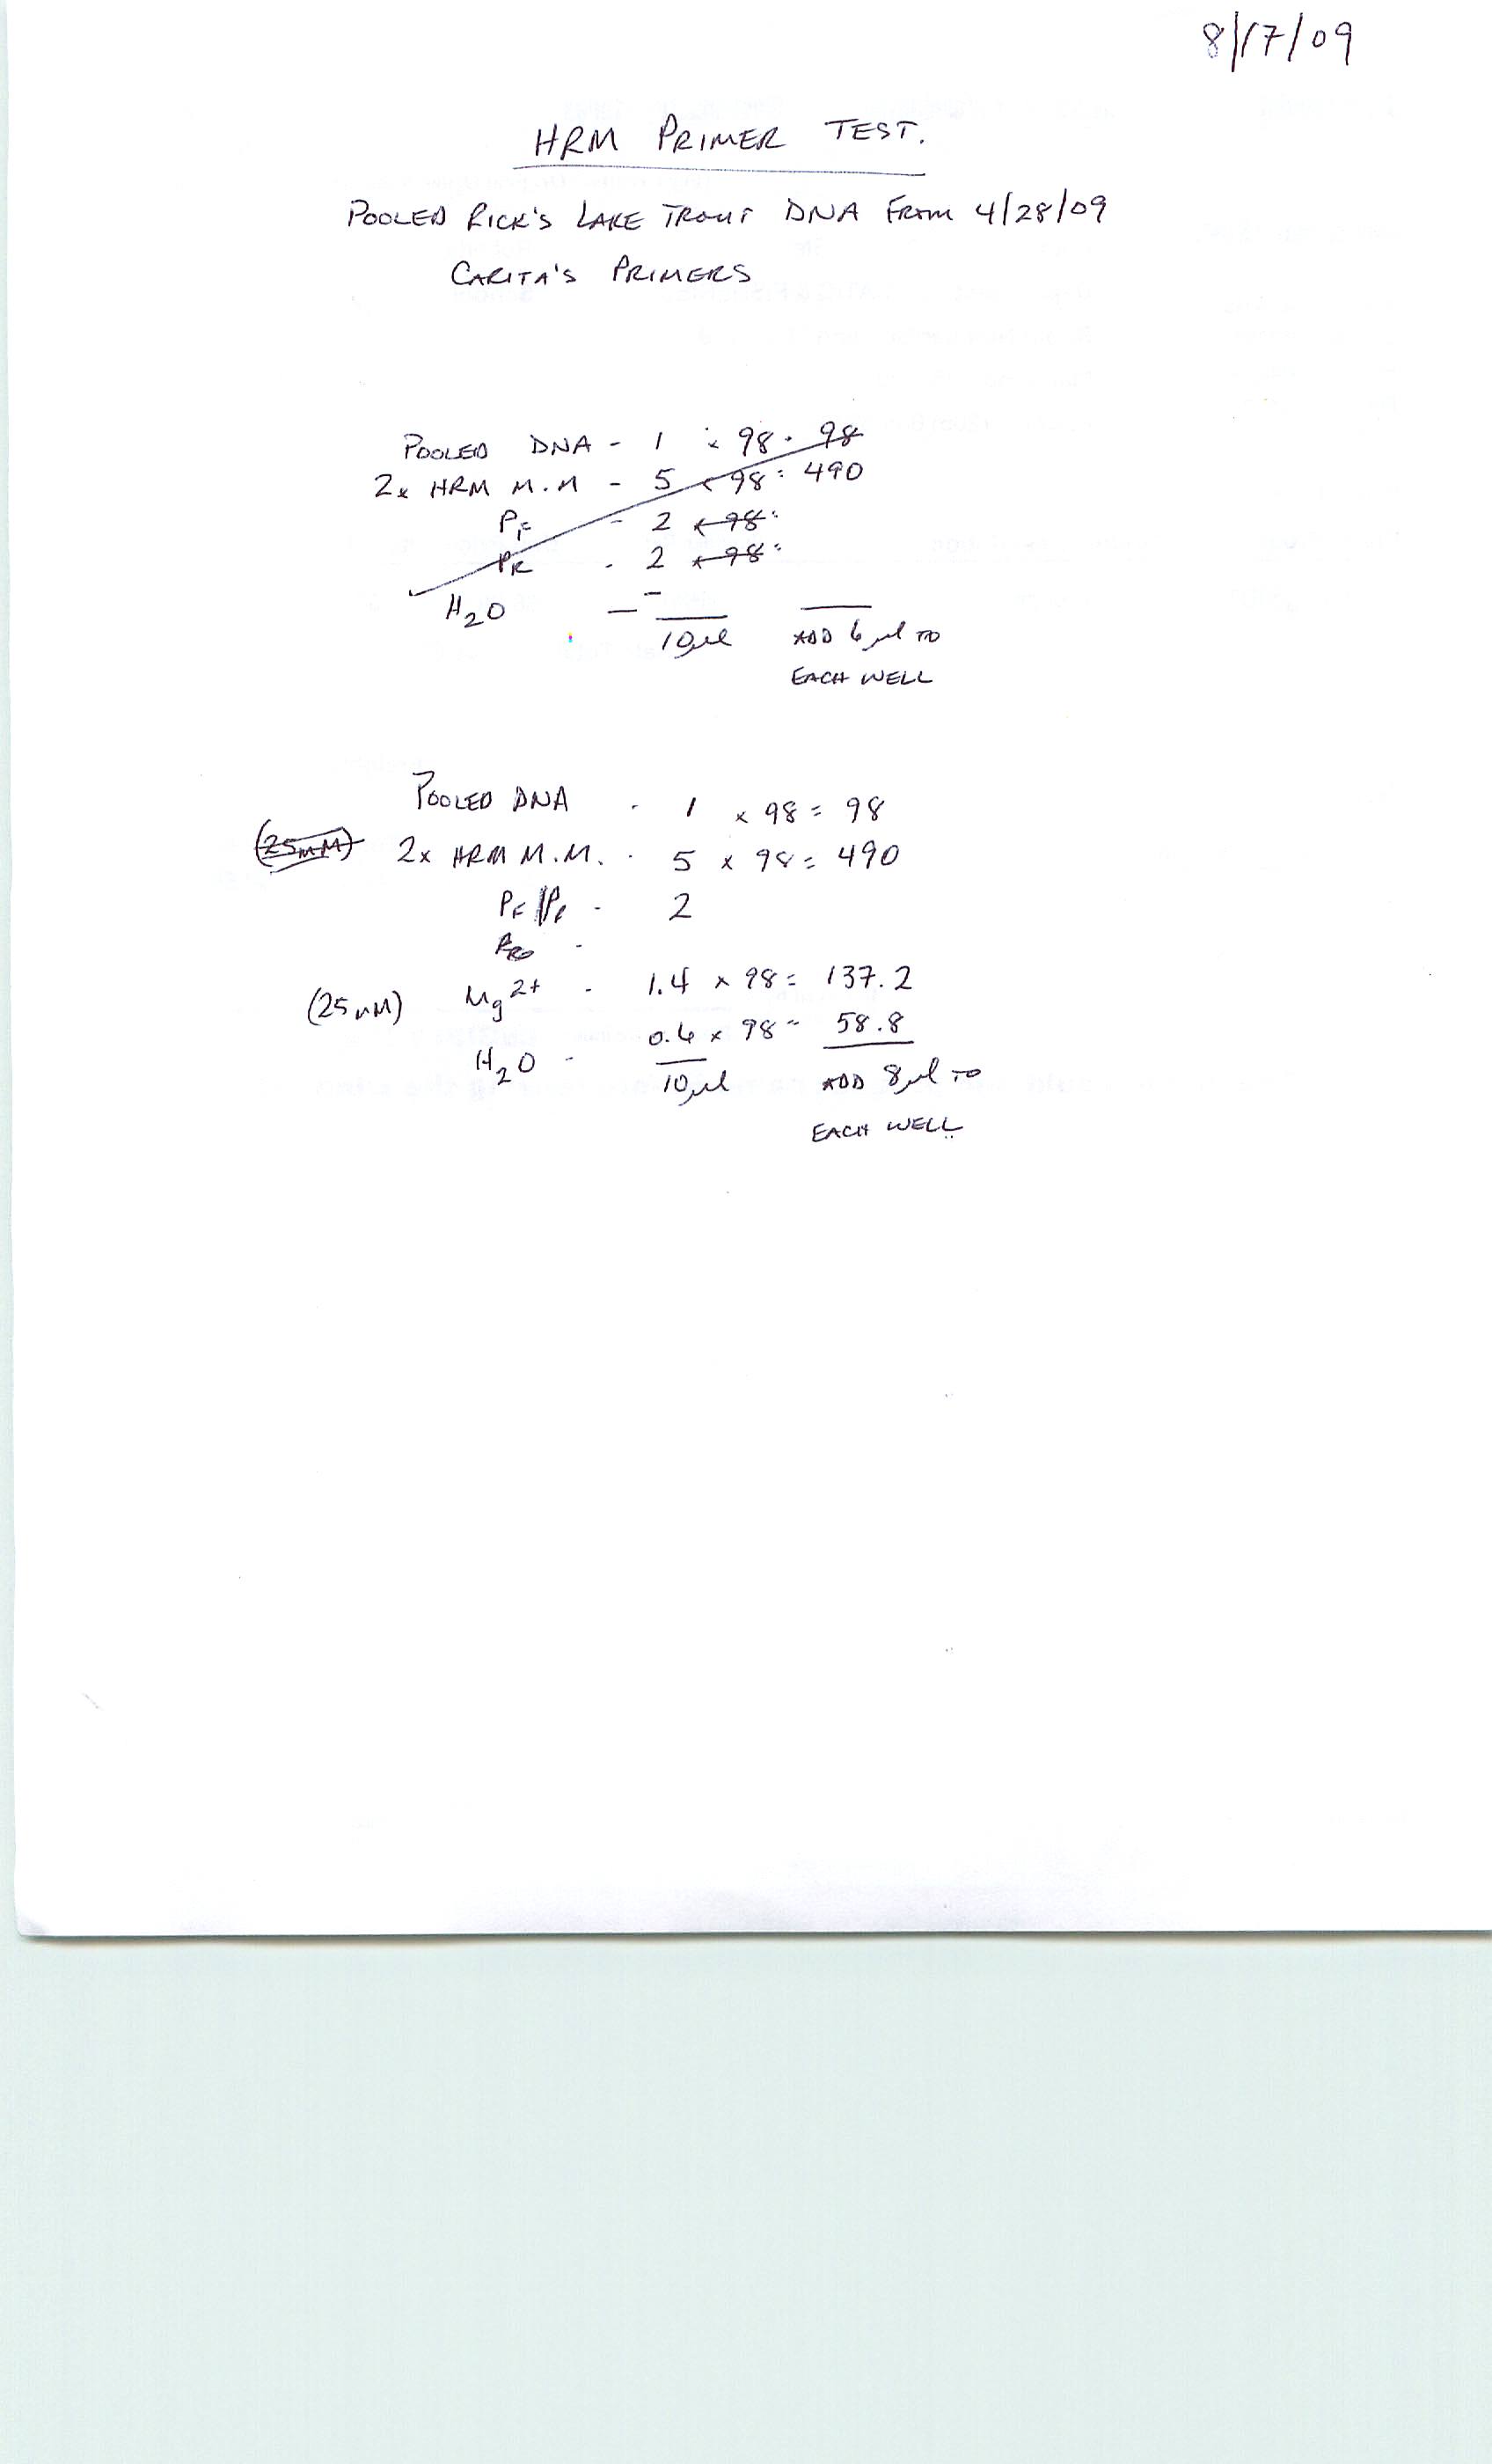 8/17/09
HRM PRIMER TEST.
POOLED RICK'S LAKE TROUT DNA FROM 4/28/09
CARITA'S PRIMERS
POOLED DNA - 1 x 98 = 98
2x HRM M.M - 5 x 98 = 490
PF - 2 x 98 =
PR - 2 x 98 =
H2O — -
10µl ADD 6µl TO
EACH WELL
POOLED DNA - 1 x 98 = 98
(25mM) 2x HRM M.M. - 5 x 98 = 490
PF/PR - 2
-
(25mM) Mg2+ - 1.4 x 98 = 137.2
H2O - 0.6 x 98 = 58.8
10µl ADD 8µl TO
EACH WELL